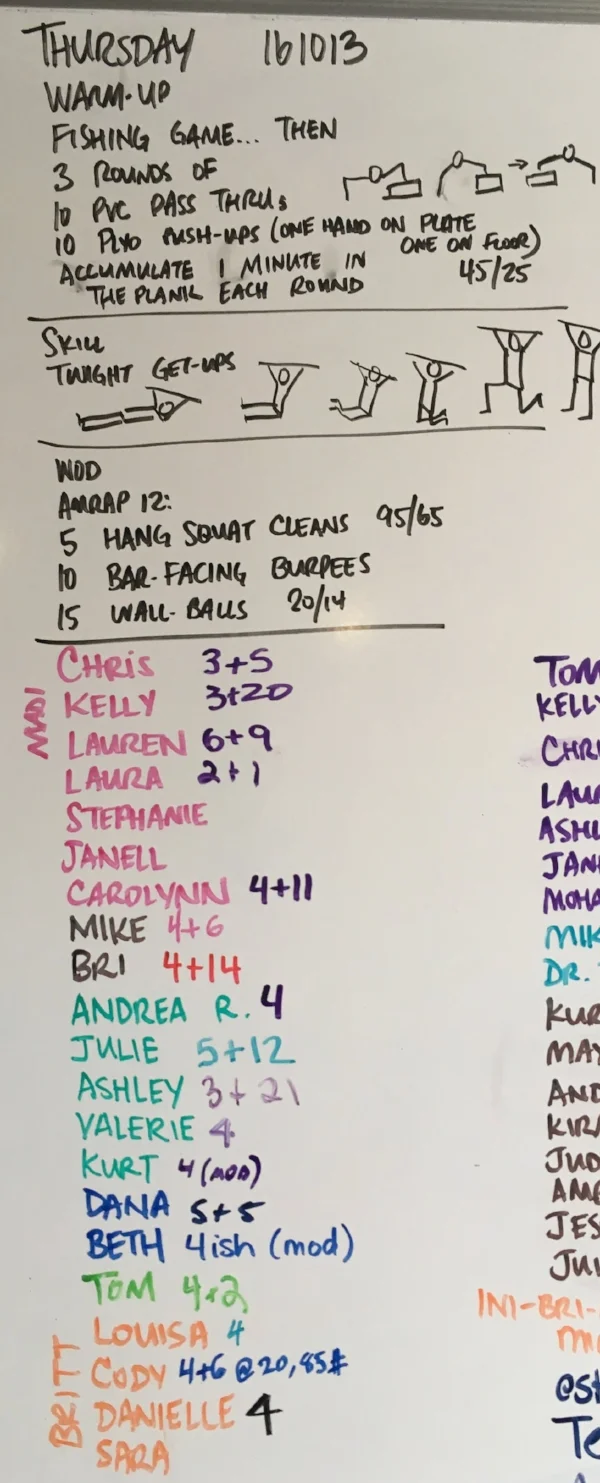 THURSDAY 161013
WARM-UP
FISHING GAME... THEN
3 ROUNDS OF
10 PVC PASS THRUs
10 PLYO PUSH-UPS (ONE HAND ON PLATE
ONE ON FLOOR)
ACCUMULATE 1 MINUTE IN 45/25
THE PLANK EACH ROUND
SKILL
TWIGHT GET-UPS
WOD
AMRAP 12:
5 HANG SQUAT CLEANS 95/65
10 BAR-FACING BURPEES
15 WALL-BALLS 20/14
MADI
CHRIS 3+5
KELLY 3+20
LAUREN 6+9
LAURA 2+1
STEPHANIE
JANELL
CAROLYNN 4+11
MIKE 4+6
BRI 4+14
ANDREA R. 4
JULIE 5+12
ASHLEY 3+21
VALERIE 4
KURT 4 (MOD)
DANA 5+5
BETH 4ish (mod)
TOM 4+2
BRITT
LOUISA 4
CODY 4+6 @20,85#
DANIELLE 4
SARA
TOM
KELLY
CHRI
LAU
ASHL
JAN
MOHA
MIK
DR.
KUR
MAY
AND
KIRA
JUD
AME
JES
JUL
INI-BRI-
MI
@st
Te